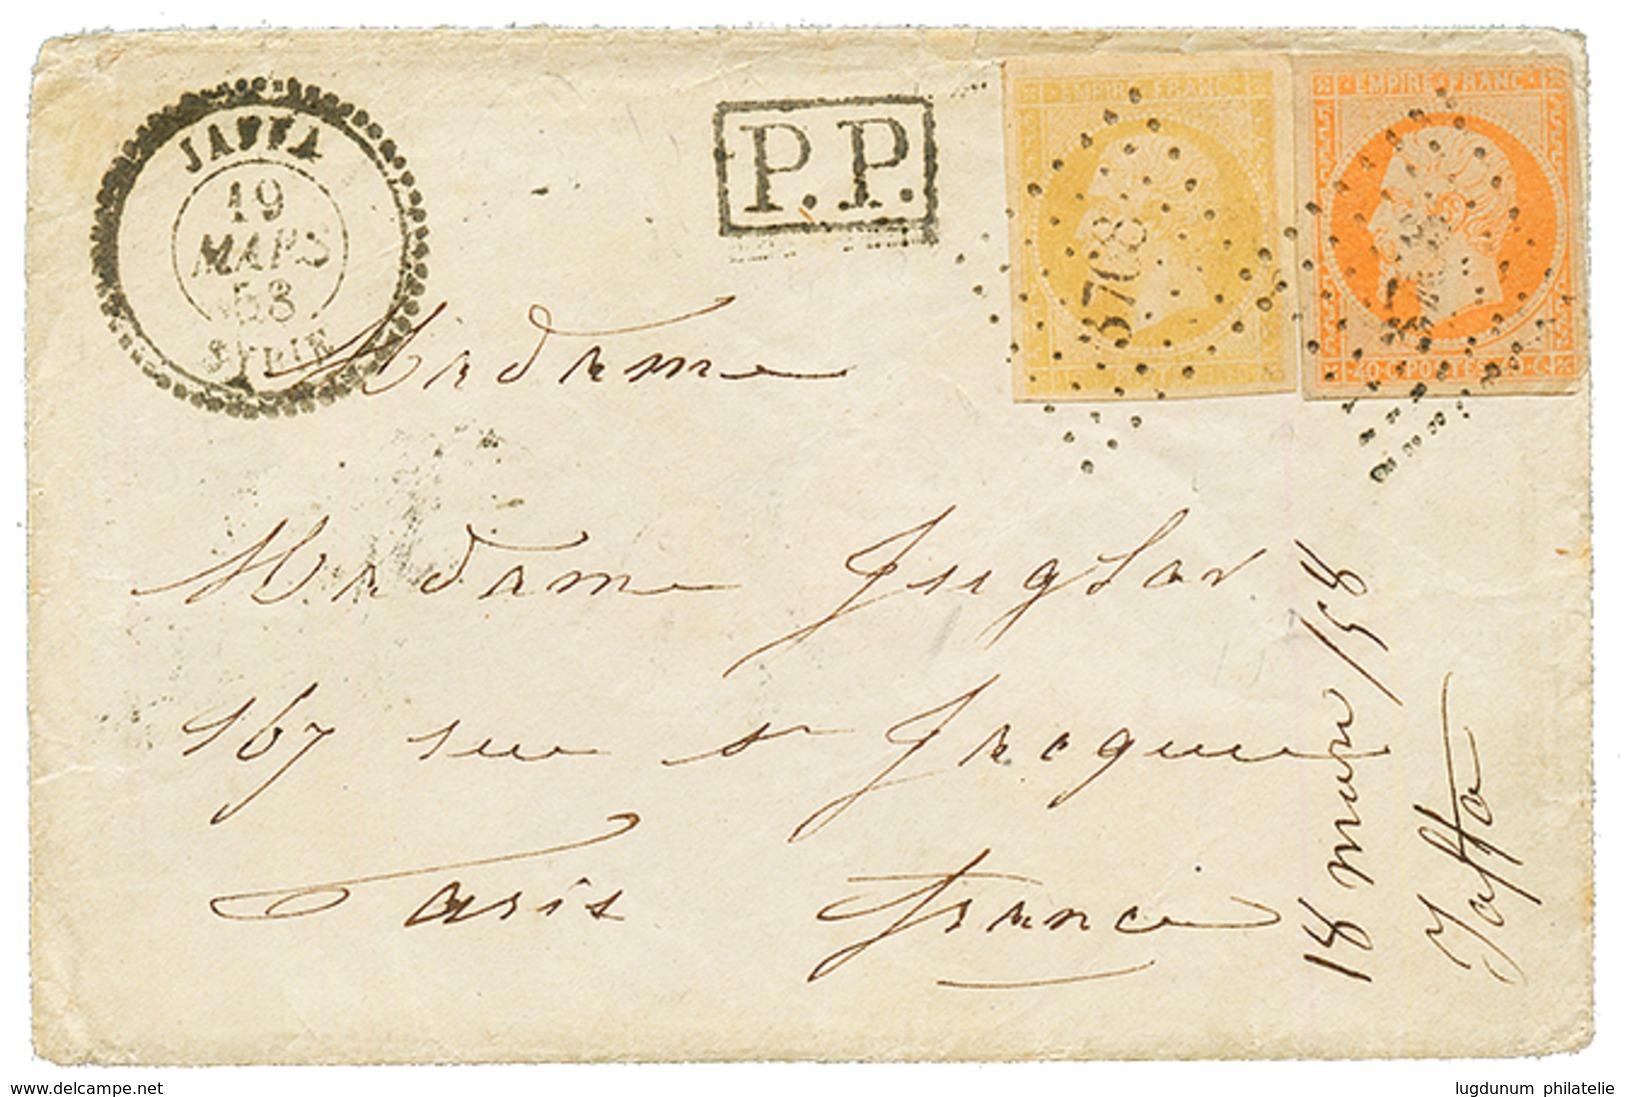 JAFFA
19
MARS
58
SYRIE
P.P.
EMPIRE FRANC
EMPIRE FRANC
3708
3708
40 C POSTES 40 C
Madame
Madame Juglar
167 rue St Jacques
Paris France
18 mars / 58
Jaffa
www.delcampe.net
lugdunum philatelie